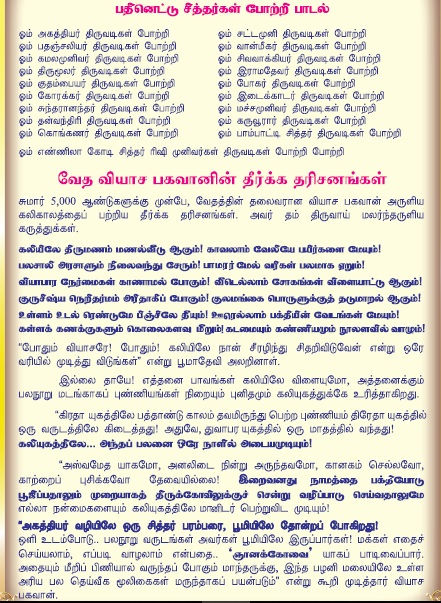 பதினெட்டு சித்தர்கள் போற்றி பாடல்
ஓம் அகத்தியர் திருவடிகள் போற்றி
ஓம் பதஞ்சலியர் திருவடிகள் போற்றி
ஓம் கமலமுனிவர் திருவடிகள் போற்றி
ஓம் திருமூலர் திருவடிகள் போற்றி
ஓம் குதம்பையர் திருவடிகள் போற்றி
ஓம் கோரக்கர் திருவடிகள் போற்றி
ஓம் சுந்தரானந்தர் திருவடிகள் போற்றி
ஓம் தன்வந்திரி திருவடிகள் போற்றி
ஓம் கொங்கணர் திருவடிகள் போற்றி
ஓம் சட்டமுனி திருவடிகள் போற்றி
ஓம் வான்மீகர் திருவடிகள் போற்றி
ஓம் சிவவாக்கியர் திருவடிகள் போற்றி
ஓம் இராமதேவர் திருவடிகள் போற்றி
ஓம் போகர் திருவடிகள் போற்றி
ஓம் இடைக்காடர் திருவடிகள் போற்றி
ஓம் மச்சமுனிவர் திருவடிகள் போற்றி
ஓம் கருவூரார் திருவடிகள் போற்றி
ஓம் பாம்பாட்டி சித்தர் திருவடிகள் போற்றி
ஓம் எண்ணிலா கோடி சித்தர் ரிஷி முனிவர்கள் திருவடிகள் போற்றி போற்றி
வேத வியாச பகவானின் தீர்க்க தரிசனங்கள்
சுமார் 5,000 ஆண்டுகளுக்கு முன்பே, வேதத்தின் தலைவரான வியாச பகவான் அருளிய
கலிகாலத்தைப் பற்றிய தீர்க்க தரிசனங்கள். அவர் தம் திருவாய் மலர்ந்தருளிய
கருத்துக்கள்.
கலியிலே திருமணம் மணல்வீடு ஆகும்! காவலாம் வேலியே பயிர்களை மேயும்!
பலசாலி அரசாளும் நிலைவந்து சேரும்! பாமரர் மேல் வரிகள் பலமாக ஏறும்!
வியாபார நேர்மைகள் காணாமல் போகும்! வீடெல்லாம் சோகங்கள் விளையாட்டு ஆகும்!
குருசிஷ்ய நெறிதர்மம் அரிதாகிப் போகும்! குலமங்கை பொருளுக்குத் தடுமாறல் ஆகும்!
உள்ளம் உடல் ரெண்டுமே பீஞ்சிலே தீயும்! ஊரெல்லாம் பக்தியின் வேடங்கள் மேயும்!
கள்ளக் கணக்குகளும் கொலைகளவு மீறும்! கடமையும் கண்ணியமும் நூலளவில் வாழும்!
“போதும் வியாசரே! போதும்! கலியிலே நான் சீரழிந்து சிதறிவிடுவேன் என்று ஒரே
வரியில் முடித்து விடுங்கள்” என்று பூமாதேவி அலறினாள்.
இல்லை தாயே! எத்தனை பாவங்கள் கலியிலே விளையுமோ, அத்தனைக்கும்
பலநூறு மடங்காகப் புண்ணியங்கள் நிறையும் புனிதமும் கலியுகத்துக்கே உரித்தாகிறது.
“கிரதா யுகத்திலே பத்தாண்டு காலம் தவமிருந்து பெற்ற புண்ணியம் திரேதா யுகத்தில்
ஒரு வருடத்திலே கிடைத்தது! அதுவே, துவாபர யுகத்தில் ஒரு மாதத்தில் வந்தது!
கலியுகத்திலே... அந்தப் பலனை ஒரே நாளில் அடையமுடியும்!
“அஸ்வமேத யாகமோ, அனலிடை நின்று அருந்தவமோ, கானகம் செல்லவோ,
காற்றைப் புசிக்கவோ தேவையில்லை! இறைவனது நாமத்தை பக்தியோடு
பூஜிப்பதாலும் முறையாகத் திருக்கோவிலுக்குச் சென்று வழிப்பாடு செய்வதாலுமே
எல்லா நன்மைகளையும் கலியுகத்திலே மானிடர் பெற்றுவிட முடியும்!
“அகத்தியர் வழியிலே ஒரு சித்தர் பரம்பரை, பூமியிலே தோன்றப் போகிறது!
ஒளி உடம்போடு.. பலநூறு வருடங்கள் அவர்கள் பூமியிலே இருப்பார்கள்! மக்கள் எதைச்
செய்யலாம், எப்படி வாழலாம் என்பதை.. ‘ஞானக்கோவை’ யாகப் பாடிவைப்பார்.
அதையும் மீறிப் பிணியால் வருந்தப் போகும் மாந்தருக்கு, இந்த பழனி மலையிலே உள்ள
அரிய பல தெய்வீக மூலிகைகள் மருந்தாகப் பயன்படும்” என்று கூறி முடித்தார் வியாச
பகவான்.